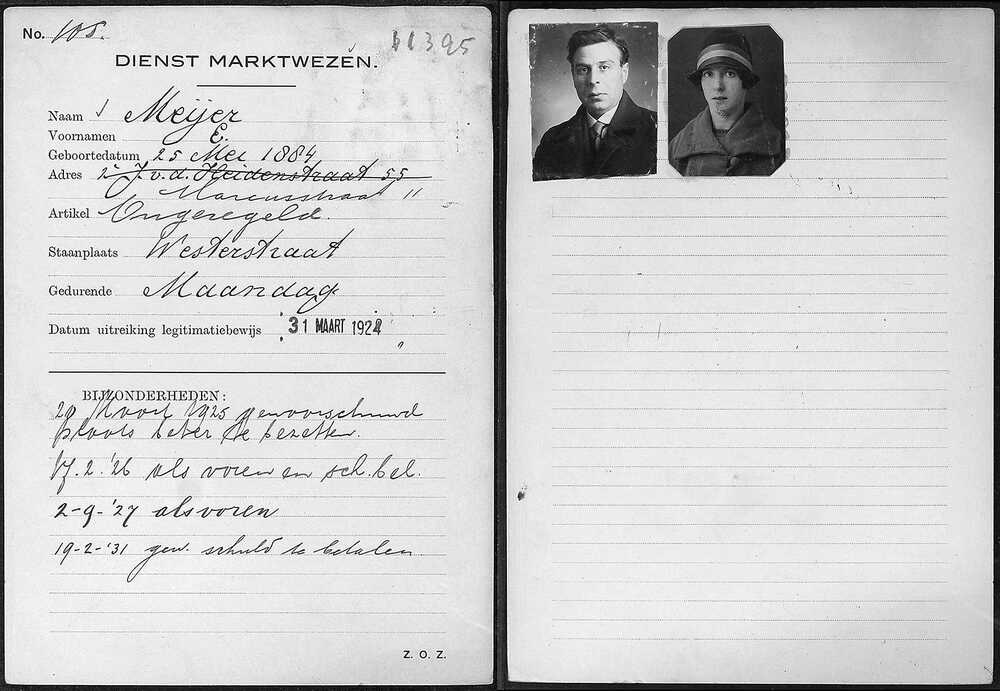 No. 105.
11395
DIENST MARKTWEZEN.
Naam Meijer
Voornamen E.
Geboortedatum 25 Mei 1884
Adres 2e J. v. d. Heidenstraat 55
Marcusstraat 11
Artikel Ongeregeld.
Staanplaats Westerstraat
Gedurende Maandag
Datum uitreiking legitimatiebewijs 31 MAART 1922
BIJZONDERHEDEN:
20 Maart 1925 gewaarschuwd
plaats beter te bezetten.
17.2.'26 als voren en sch. bel.
2-9-'27 alsvoren
19-2-'31 gew. schuld te betalen
Z. O. Z.